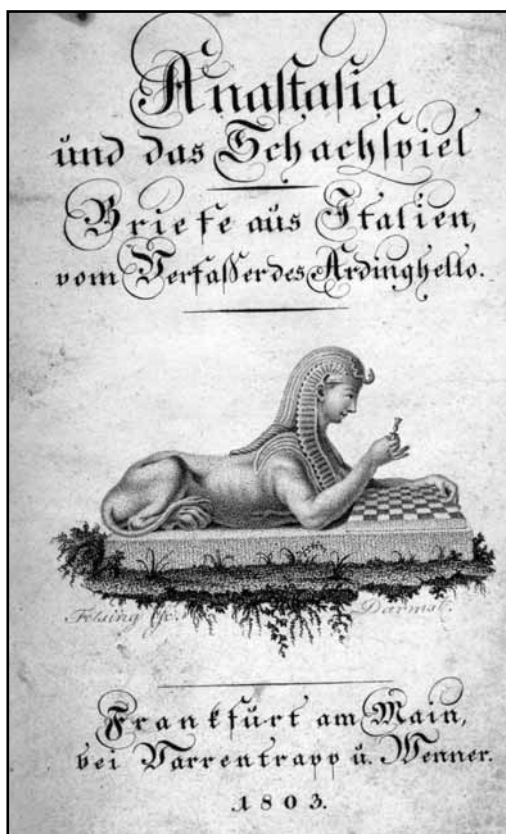 Anaſtaſia
und das Schachſpiel
Briefe aus Italien,
vom Verfaſſer des Ardinghello.
Felsing sc. Darmst.
Frankfurt am Main,
bei Varrentrapp u. Wenner.
1803.